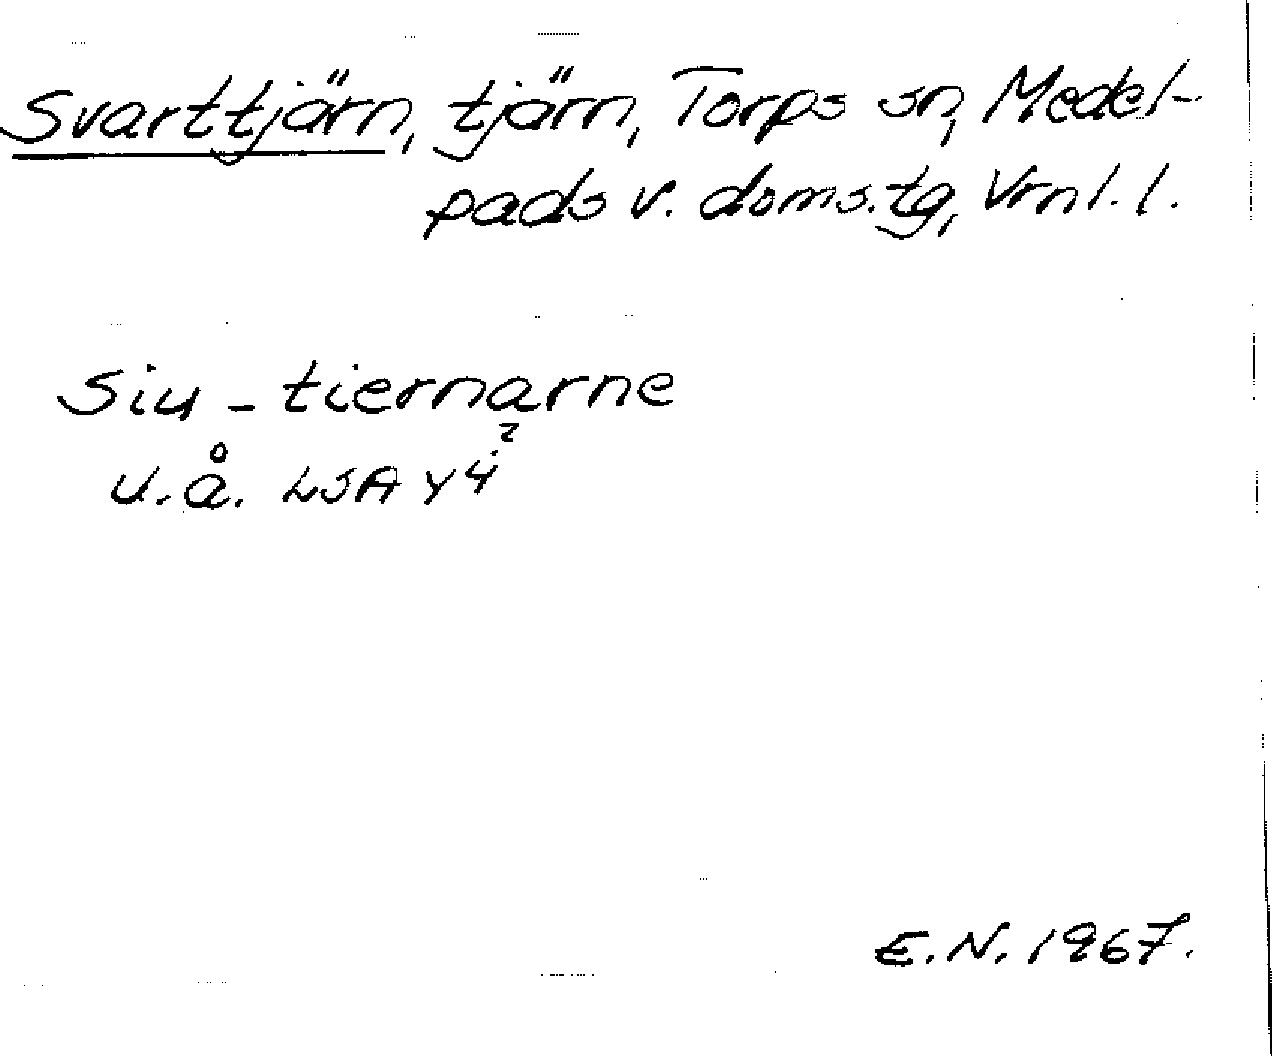 Svarttjärn, tjärn, Torps sn, Medel-
pads v. doms.tg, Vrnl. l.
Siu - tiernarne
u.å. LSA Y 4²
E.N. 1967.